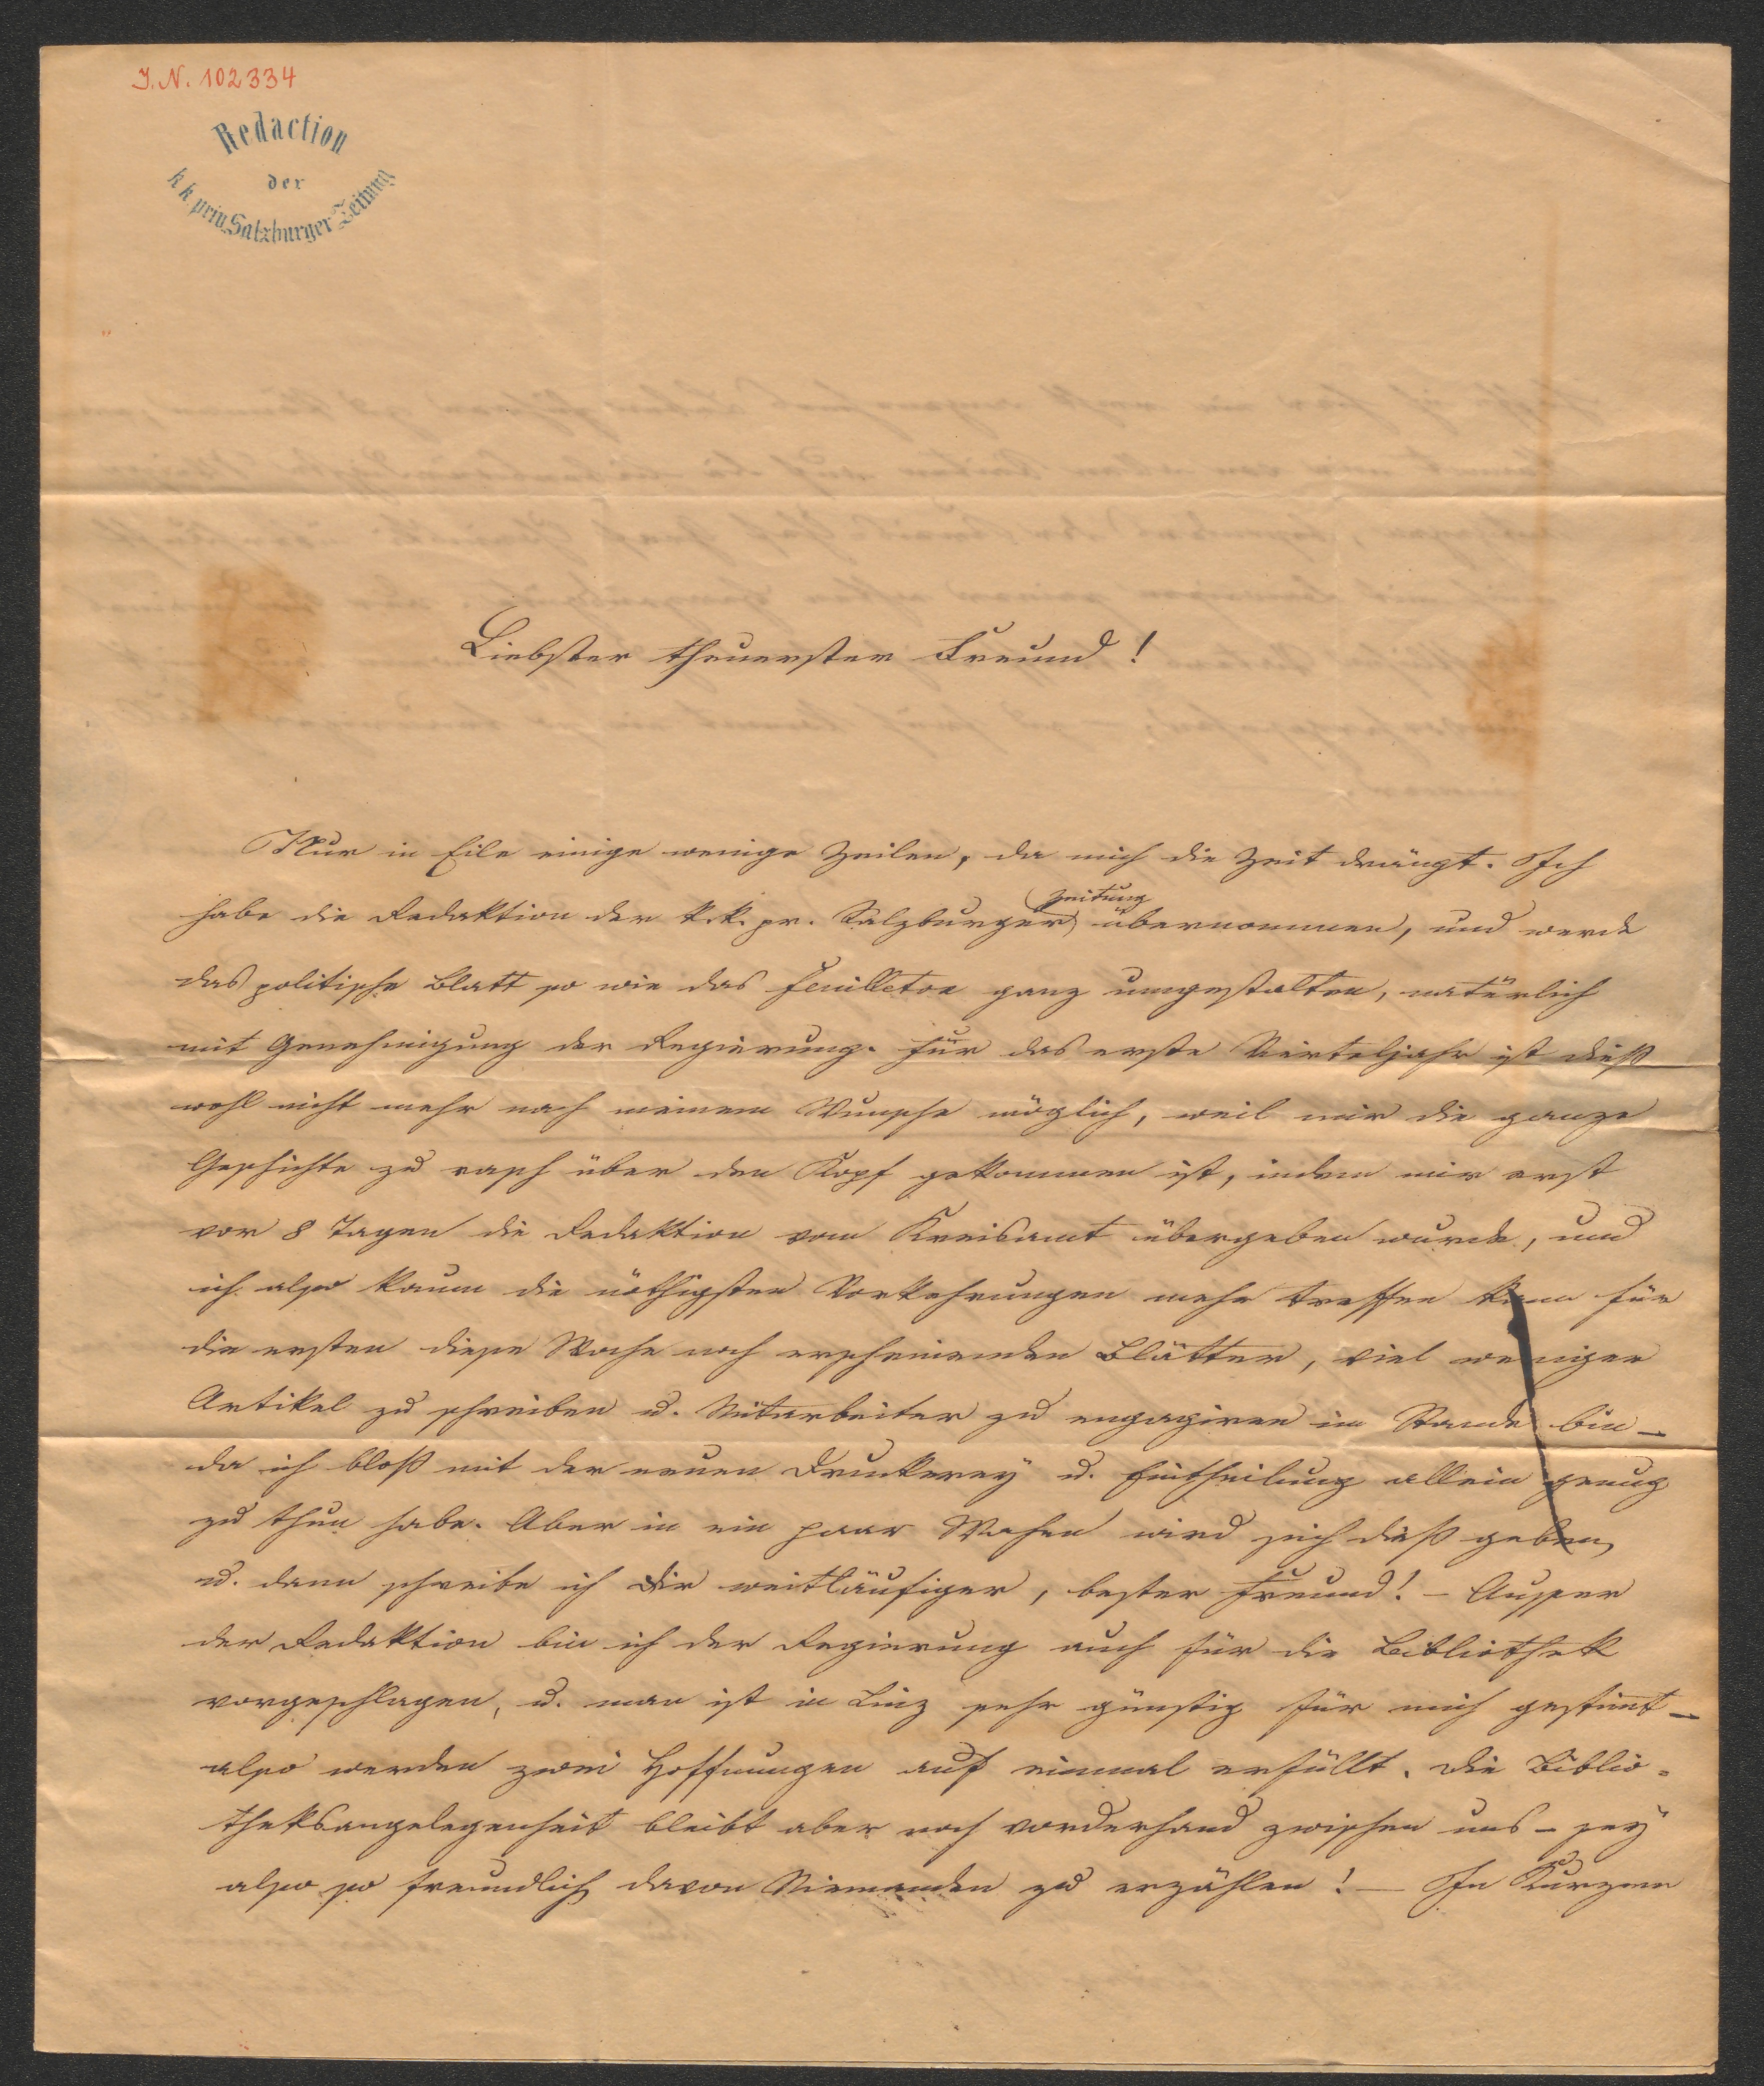 I. N. 102334
Redaction
der
k k priv. Salzburger Zeitung
Liebster theuerster Freund!
Nur in Eile einige wenige Zeilen, da mich die Zeit drängt. Ich
habe die Redaktion der k. k. pr. Salzburger Zeitung übernommen, und werde
das politische Blatt so wie das Feuilleton ganz umgestalten, natürlich
mit Genehmigung der Regierung. Für das erste Vierteljahr ist dieß
wohl nicht mehr nach meinem Wunsche möglich, weil mir die ganze
Geschichte zu rasch über den Kopf gekommen ist, indem mir erst
vor 8 Tagen die Redaktion vom Kreisamt übergeben wurde, und
ich also kaum die nöthigsten Vorkehrungen mehr treffen kann für
die ersten diese Woche noch erscheinenden Blätter, viel weniger
Artikel zu schreiben u. Mitarbeiter zu engagiren im Stande bin –
da ich bloß mit der neuen Druckerey u. Eintheilung allein genug
zu thun habe. Aber in ein paar Wochen wird sich dieß geben,
u. dann schreibe ich Dir weitläufiger, bester Freund! – Ausser
der Redaktion bin ich der Regierung auch für die Bibliothek
vorgeschlagen, u. man ist in Linz sehr günstig für mich gestimt –
also werden zwei Hoffnungen auf einmal erfüllt. Die Biblio=
theksangelegenheit bleibt aber noch vorderhand zwischen uns – sey
also so freundlich davon Niemanden zu erzählen! – In Kurzem